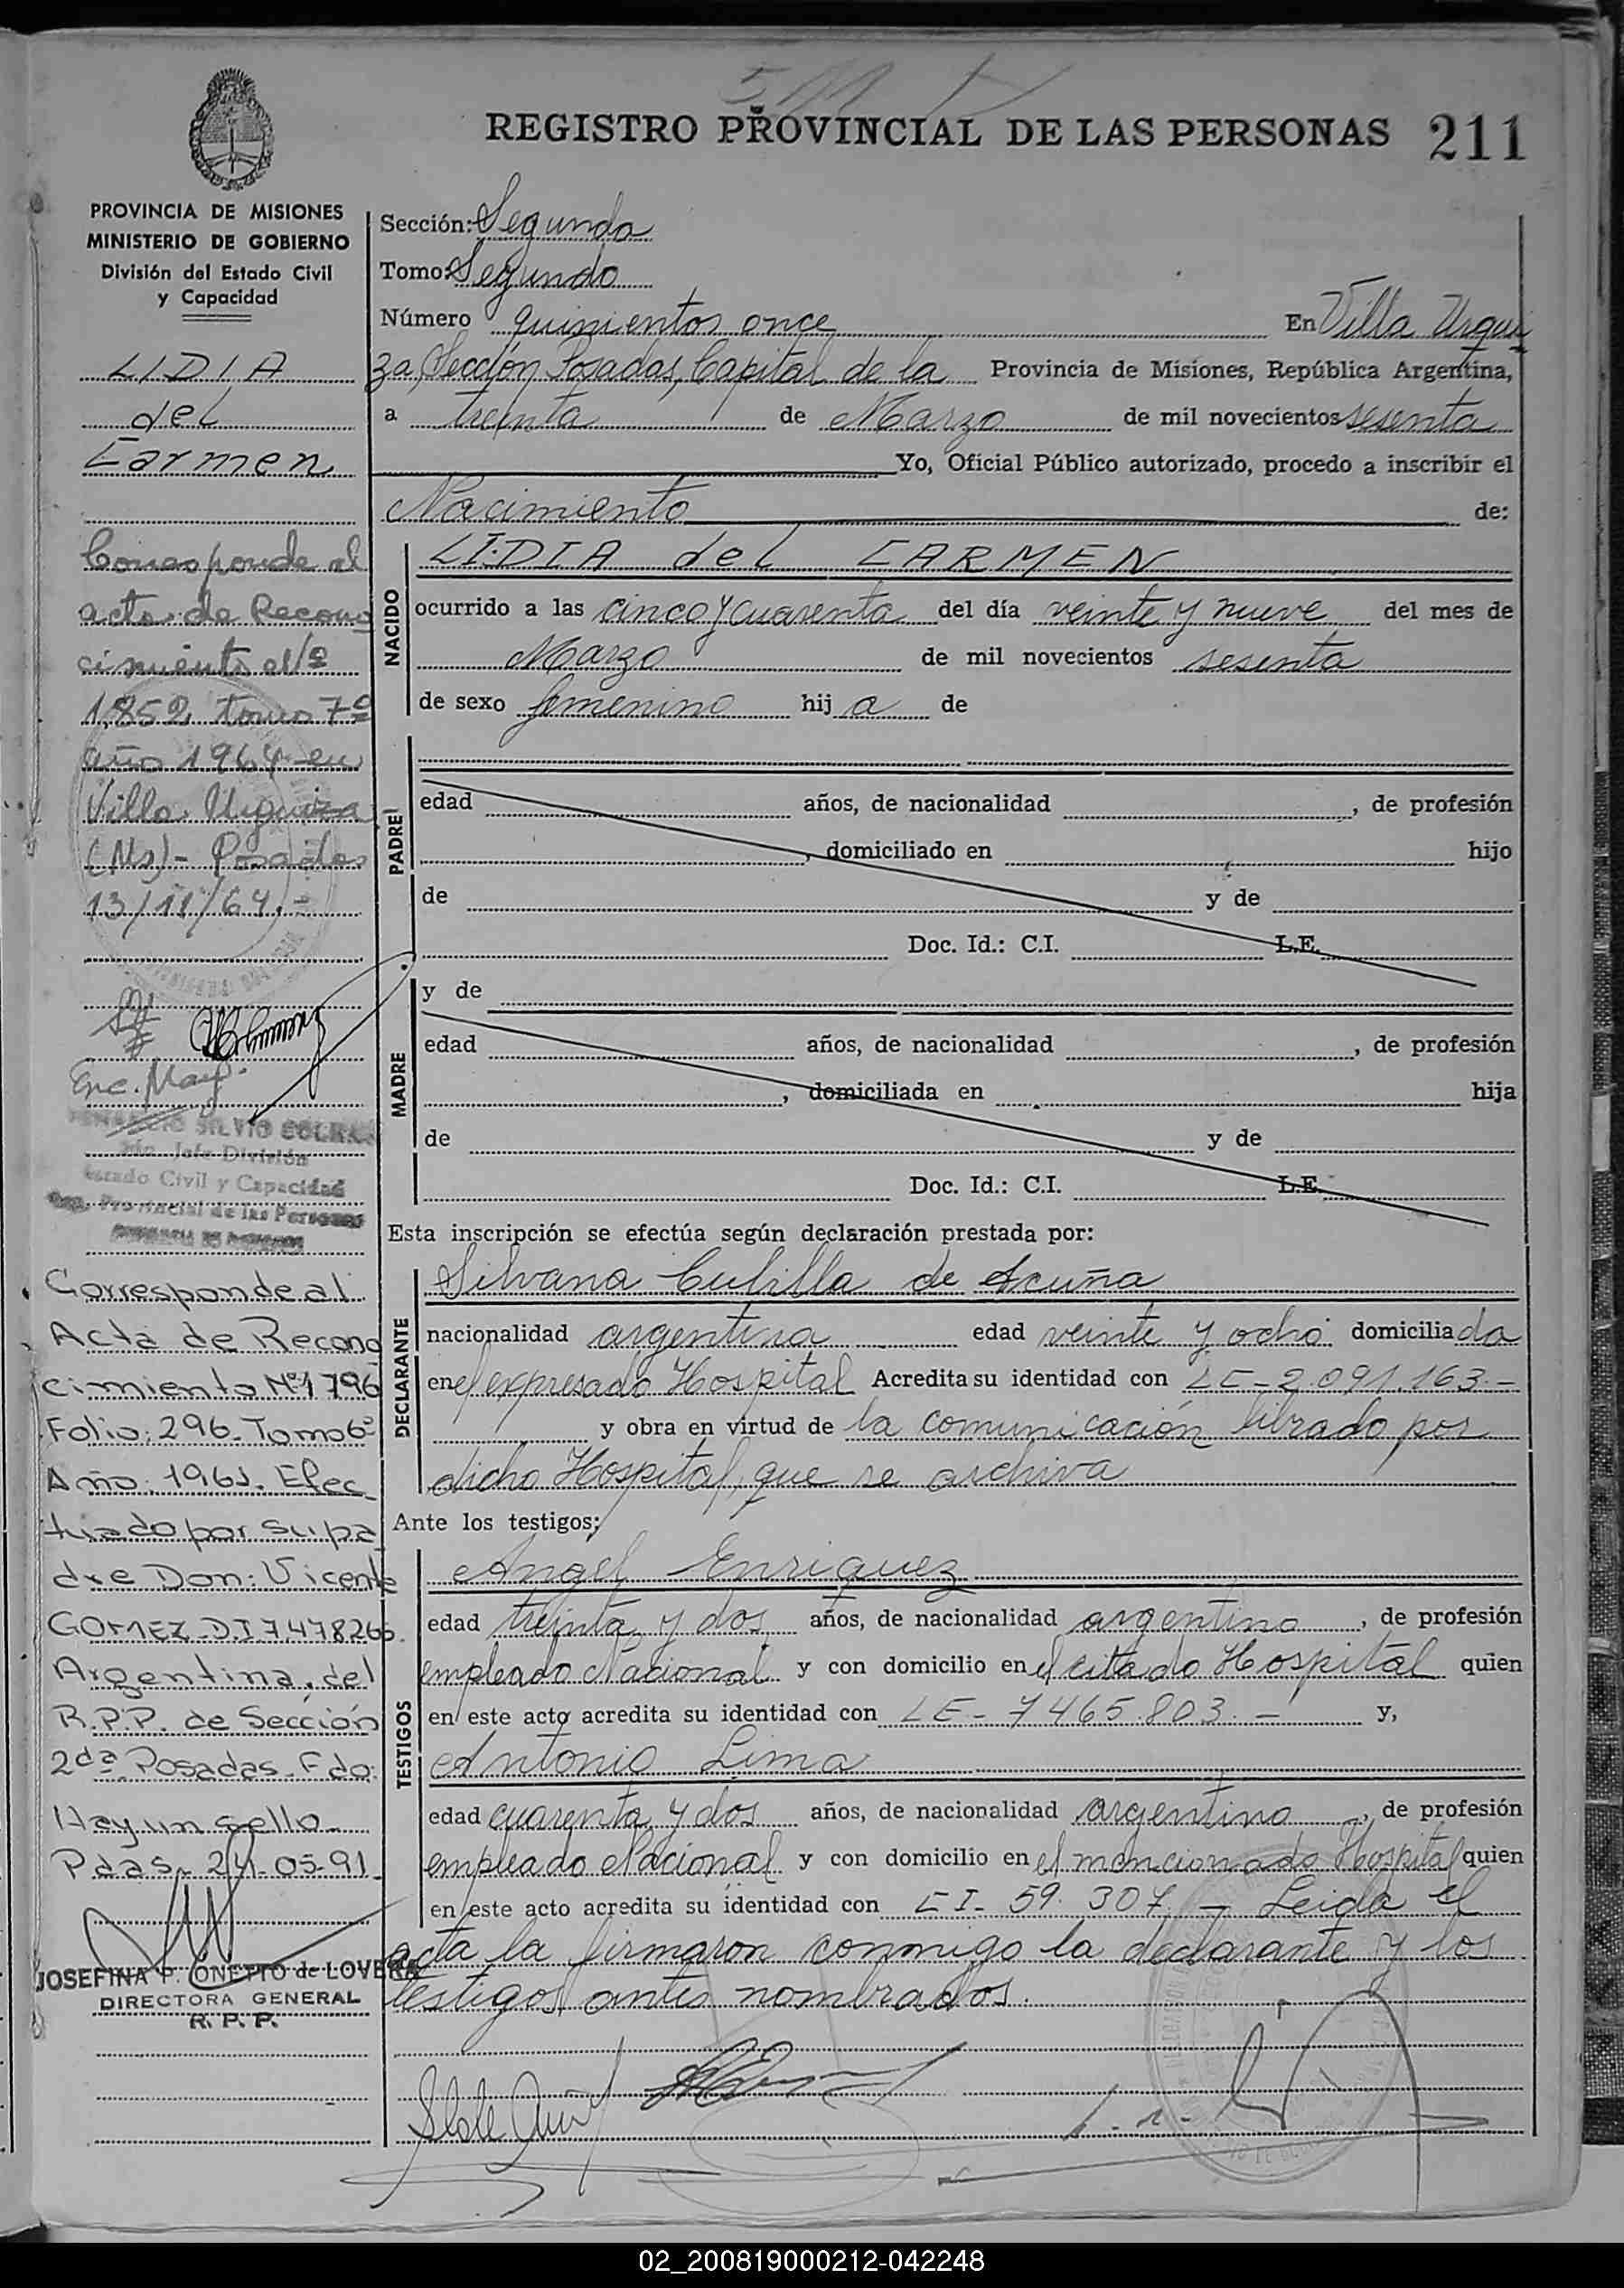 REGISTRO PROVINCIAL DE LAS PERSONAS 211
PROVINCIA DE MISIONES
MINISTERIO DE GOBIERNO
División del Estado Civil
y Capacidad
LIDIA
del
Carmen
Corresponde al
acto de Recono
cimiento Nº
1.852 tomo 7º
año 1964 en
Villa Urquiza
(Ms)- Posadas
13/11/64.-
Enc. May.
SILVIO
Jefe División
Estado Civil y Capacidad
Reg. Provincial de las Personas
Corresponde al
Acta de Recono
cimiento Nº1796
Folio: 296. Tomo 6º
Año: 1961. Efec
tuado por su pa
dre Don: Vicente
GOMEZ D.I 7.478266.
Argentina, del
R.P.P. de Sección
2da Posadas. Fdo:
Hay un sello.
Pdas. 24-05-91
JOSEFINA P. ONETTO de LOVERA
DIRECTORA GENERAL
R. P. P.
Sección: Segunda
Tomo: Segundo
Número quinientos once En Villa Urqui
za, Sección Posadas, Capital de la Provincia de Misiones, República Argentina,
a treinta de Marzo de mil novecientos sesenta
Yo, Oficial Público autorizado, procedo a inscribir el
Nacimiento de:
NACIDO
LIDIA del CARMEN
ocurrido a las cinco y cuarenta del día veinte y nueve del mes de
Marzo de mil novecientos sesenta
de sexo femenino hij a de
PADRE
edad años, de nacionalidad , de profesión
, domiciliado en hijo
de y de
Doc. Id.: C.I. L.E.
MADRE
y de
edad años, de nacionalidad , de profesión
, domiciliada en hija
de y de
Doc. Id.: C.I. L.E.
Esta inscripción se efectúa según declaración prestada por:
DECLARANTE
Silvana Cubilla de Acuña
nacionalidad argentina edad veinte y ocho domiciliada
en el expresado Hospital Acredita su identidad con LC-2.091.163.-
y obra en virtud de la comunicación librado por
dicho Hospital, que se archiva
Ante los testigos:
TESTIGOS
Angel Enriquez
edad treinta y dos años, de nacionalidad argentino, de profesión
empleado Nacional y con domicilio en el citado Hospital quien
en este acto acredita su identidad con LE- 7465.803.- y,
Antonio Lima
edad cuarenta y dos años, de nacionalidad argentino, de profesión
empleado Nacional y con domicilio en el mencionado Hospital quien
en este acto acredita su identidad con CI- 59.307.- Leida el
acta la firmaron conmigo la declarante y los
testigos antes nombrados.
02_200819000212-042248